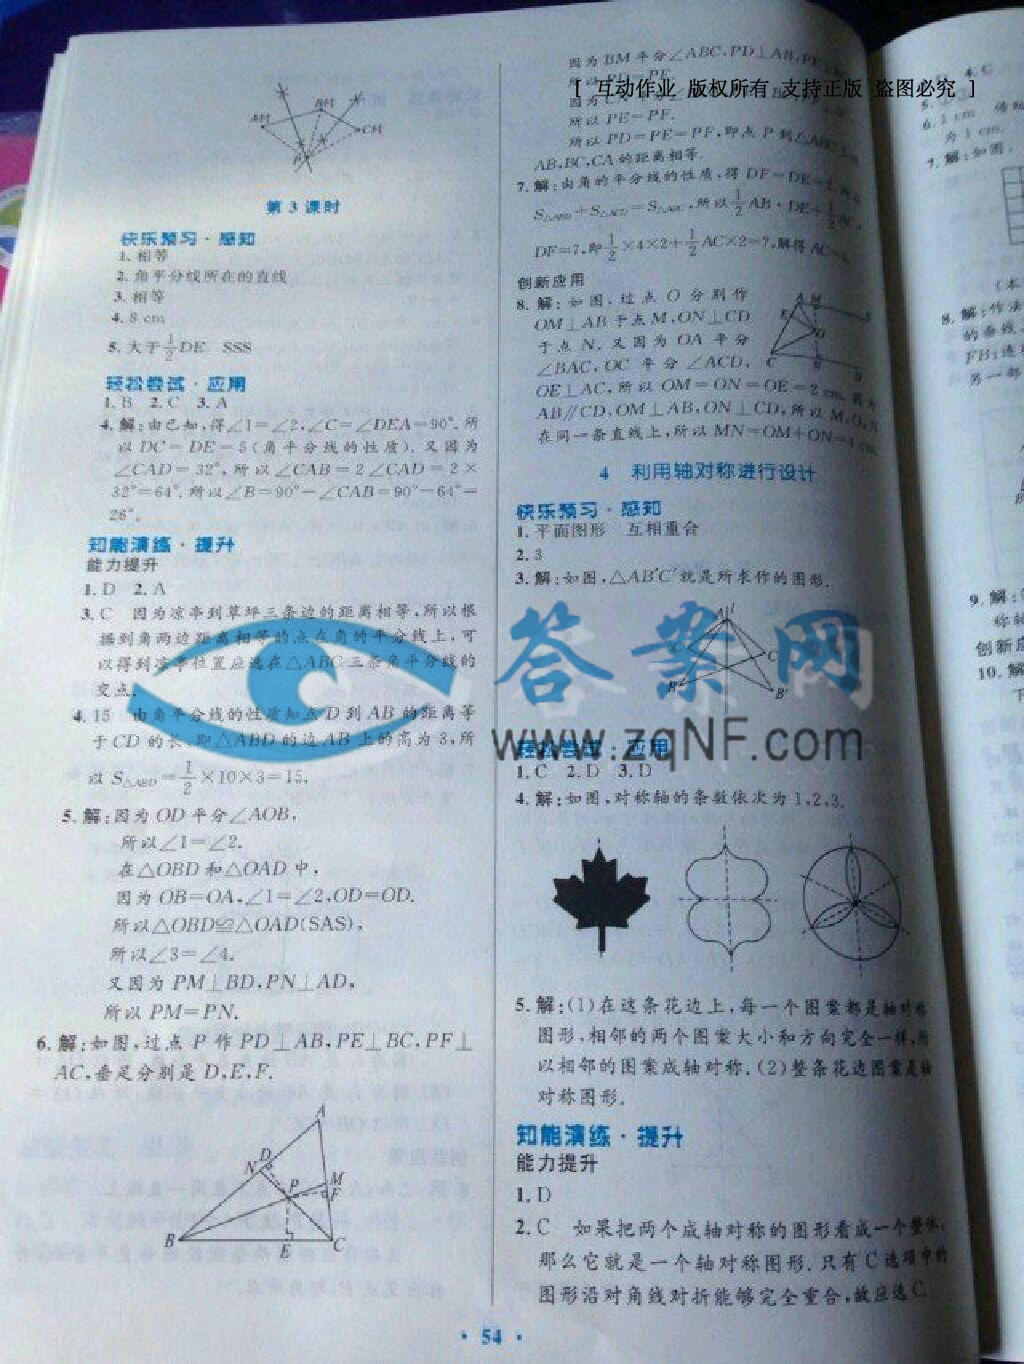 第 3 课时
快乐预习·感知
1. 相等
2. 角平分线所在的直线
3. 相等
4. 8 cm
5. 大于1/2DE SSS
轻松尝试·应用
1. B 2. C 3. A
4. 解:由已知,得∠1=∠2,∠C=∠DEA=90°,所
以 DC=DE=5(角平分线的性质). 又因为
∠CAD=32°,所以∠CAB=2∠CAD=2×
32°=64°,所以∠B=90°-∠CAB=90°-64°=
26°.
知能演练·提升
能力提升
1. D 2. A
3. C 因为凉亭到草坪三条边的距离相等,所以根
据到角两边距离相等的点在角的平分线上,可
以得到凉亭位置应选在△ABC三条角平分线的
交点.
4. 15 由角平分线的性质知点D到AB的距离等
于CD的长,即△ABD的边AB上的高为3,所
以 S△ABD=1/2×10×3=15.
5. 解:因为OD平分∠AOB,
所以∠1=∠2.
在△OBD和△OAD中,
因为OB=OA,∠1=∠2,OD=OD.
所以△OBD≌△OAD(SAS),
所以∠3=∠4.
又因为PM⊥BD,PN⊥AD,
所以PM=PN.
6. 解:如图,过点P作PD⊥AB,PE⊥BC,PF⊥
AC,垂足分别是D,E,F.
A
N D
P M
F
B E C
因为BM平分∠ABC,PD⊥AB,
[ 互动作业 版权所有 支持正版 盗图必究 ]
所以PE=PF.
所以PD=PE=PF,即点P到△ABC
AB,BC,CA的距离相等.
7. 解:由角的平分线的性质,得DF=DE
S△ABD+S△ACD=S△ABC,所以1/2AB·DE+1/2AC·
DF=7,即1/2×4×2+1/2AC×2=7,解得AC=3.
创新应用
8. 解:如图,过点O分别作
OM⊥AB于点M,ON⊥CD
于点N. 又因为OA平分
∠BAC,OC平分∠ACD,
OE⊥AC,所以OM=ON=OE=2 cm. 因为
AB∥CD,OM⊥AB,ON⊥CD,所以M,O,N
在同一条直线上,所以MN=OM+ON=4 cm.
4 利用轴对称进行设计
快乐预习·感知
1. 平面图形 互相重合
2. 3
3. 解:如图,△AB'C'就是所求作的图形.
答案网
www.zqNF.com
轻松尝试·应用
1. C 2. D 3. D
4. 解:如图,对称轴的条数依次为1,2,3.
5. 解:(1)在这条花边上,每一个图案都是轴对称
图形,相邻的两个图案大小和方向完全一样,所
以相邻的图案成轴对称. (2)整条花边图案是轴
对称图形.
知能演练·提升
能力提升
1. D
2. C 如果把两个成轴对称的图形看成一个整体,
那么它就是一个轴对称图形. 只有C选项中的
图形沿对角线对折能够完全重合,故应选C.
· 54 ·
4. C
6. 1 cm
为1 cm.
7. 解:如图,
8. 解:作法
的垂线
另一部
9. 解:
称轴
创新应
10. 解